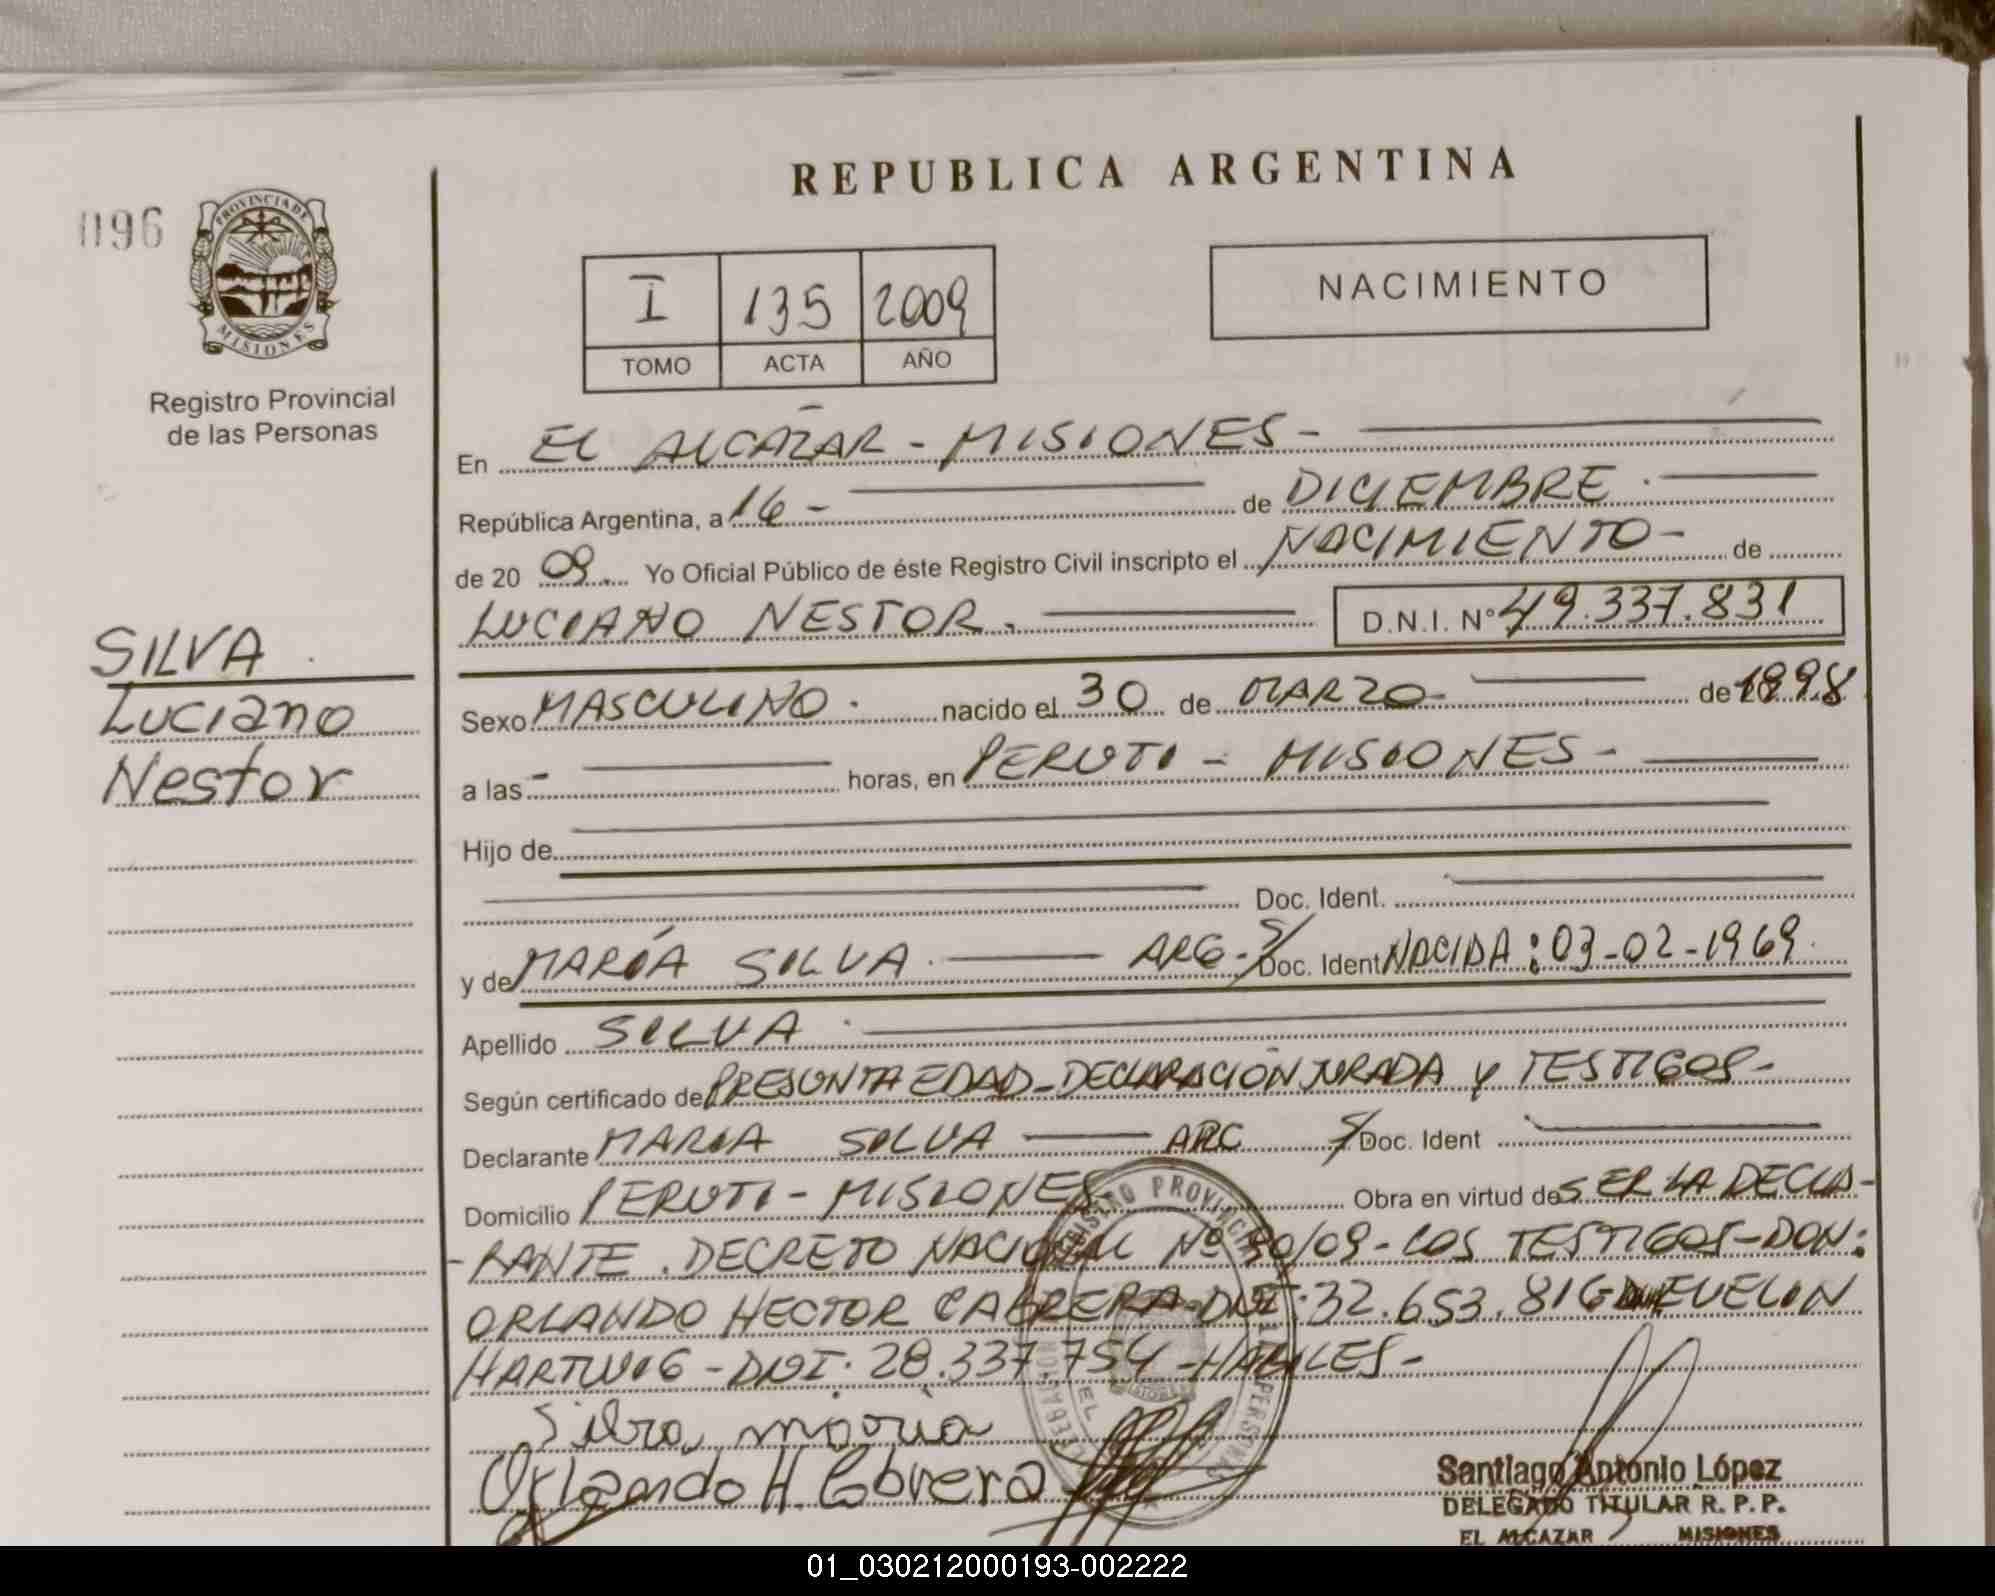 REPUBLICA ARGENTINA
096
PROVINCIA DE
MISIONES
Registro Provincial
de las Personas
NACIMIENTO
I 135 2009
TOMO ACTA AÑO
En EL ALCAZAR - MISIONES -
República Argentina, a 16 - de DICIEMBRE.
de 20 09. Yo Oficial Público de éste Registro Civil inscripto el NACIMIENTO - de
LUCIANO NESTOR. D.N.I. Nº 49.337.831
SILVA
Luciano
Nestor
Sexo MASCULINO. nacido el 30 de MARZO - de 1998
a las - horas, en PERUTI - MISIONES -
Hijo de
Doc. Ident.
y de MARÍA SILVA. ARG - S/ Doc. Ident NACIDA: 03-02-1969.
Apellido SILVA.
Según certificado de PRESUNTA EDAD - DECLARACIÓN JURADA Y TESTIGOS -
Declarante MARIA SILVA ARG S/ Doc. Ident
Domicilio PERUTI - MISIONES Obra en virtud de SER LA DECLA-
-RANTE. DECRETO NACIONAL Nº 90/09 - LOS TESTIGOS - DON:
ORLANDO HECTOR CABRERA - DNI. 32.653.816 EVELIN
HARTWIG - DNI. 28.337.754 - HABILES -
Silva maria
Orlando H. Cabrera
REGISTRO PROVINCIAL DE LAS PERSONAS
Santiago Antonio López
DELEGADO TITULAR R. P. P.
EL ALCAZAR MISIONES
01_030212000193-002222